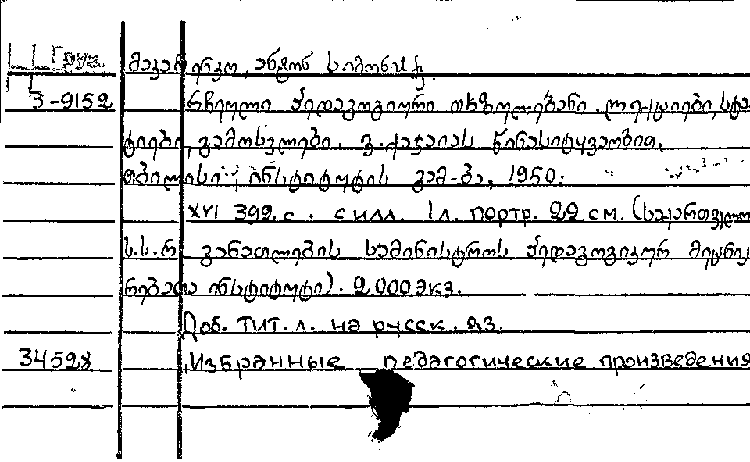 Груз. მაკარენკო, ანტონ სიმონის ძე.
3-9152 რჩეული პედაგოგიური თხზულებანი. ლექციები, სტა
ტიები, გამოსვლები. გ. წინასიტყვაობით.
თბილისი ინსტიტუტის გამ-ბა, 1950.
XVI 392 с. с илл. 1 л. портр. 22 см. (საქართველო
ს.ს.რ. განათლების სამინისტროს პედაგოგიკურ მეცნიე
რებათა ინსტიტუტი). 2000 экз.
Доб. тит. л. на русск. яз.
34528 Избранные педагогические произведения